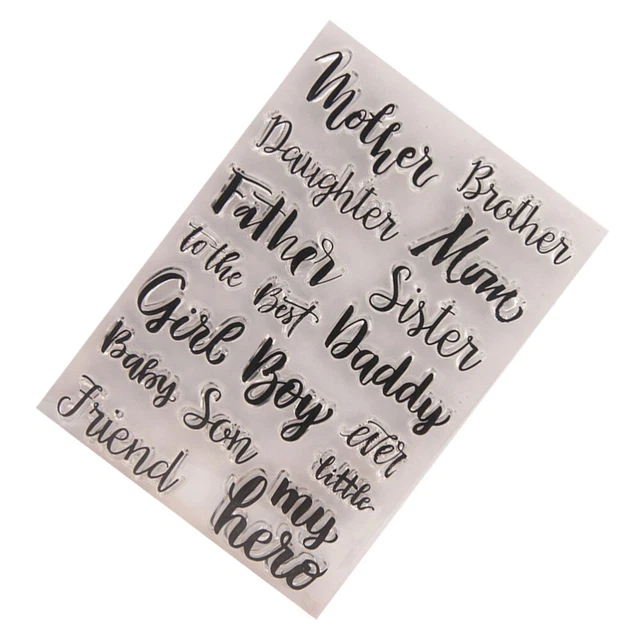 Mother
Daughter Brother
Father Mom
to the Best Sister
Girl Boy Daddy
Baby Son ever
Friend little
my
hero